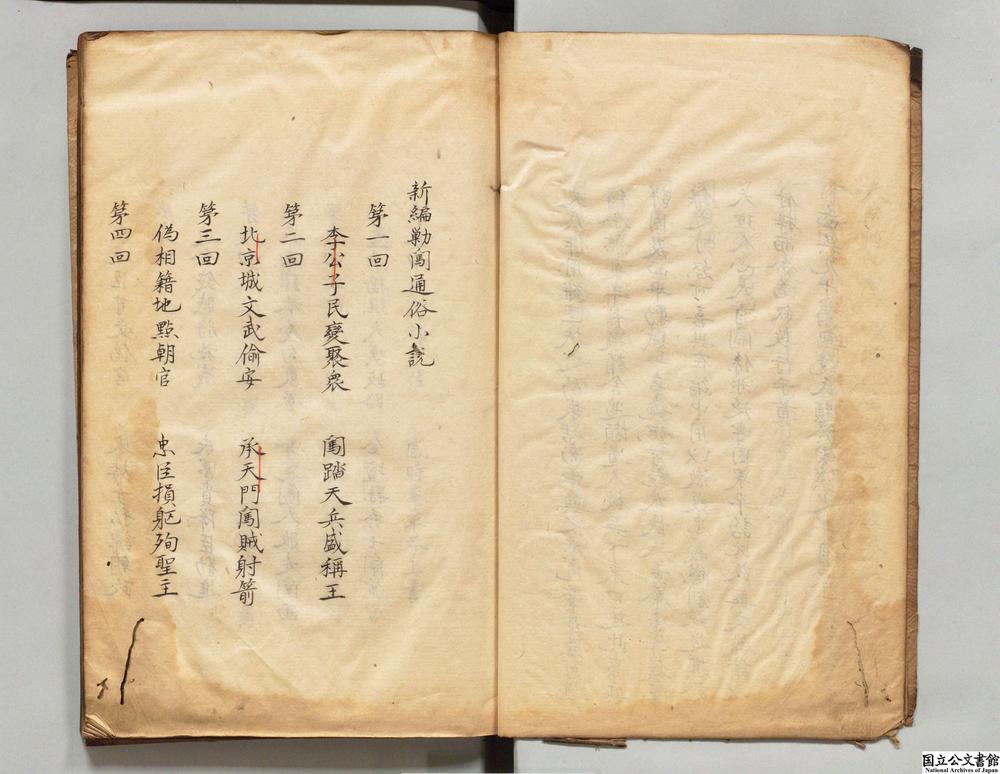 新編勦闖通俗小說
第一回
李公子民變聚衆　闖踏天兵盛稱王
第二回
北京城文武偷安　承天門闖賊射箭
第三回
偽相籍地點朝官　忠臣損躯殉聖主
第四回
国立公文書館
National Archives of Japan